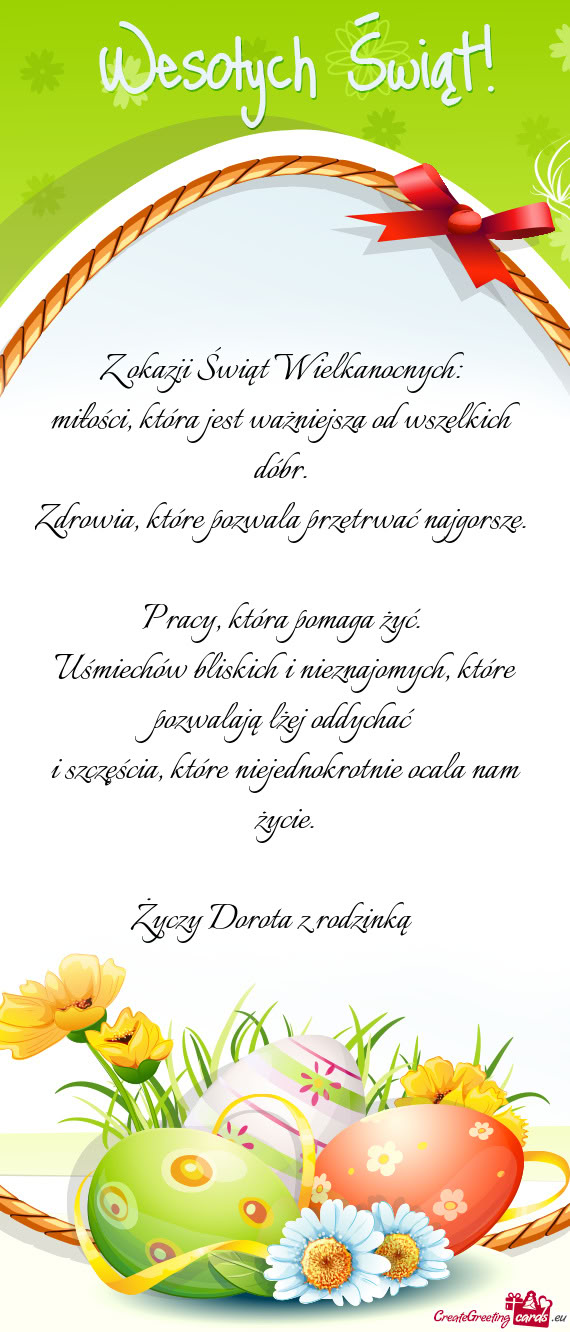 Wesołych Świąt!
Z okazji Świąt Wielkanocnych:
miłości, która jest ważniejsza od wszelkich
dóbr.
Zdrowia, które pozwala przetrwać najgorsze.
Pracy, która pomaga żyć.
Uśmiechów bliskich i nieznajomych, które
pozwalają lżej oddychać
i szczęścia, które niejednokrotnie ocala nam
życie.
Życzy Dorota z rodzinką
CreateGreeting cards .eu